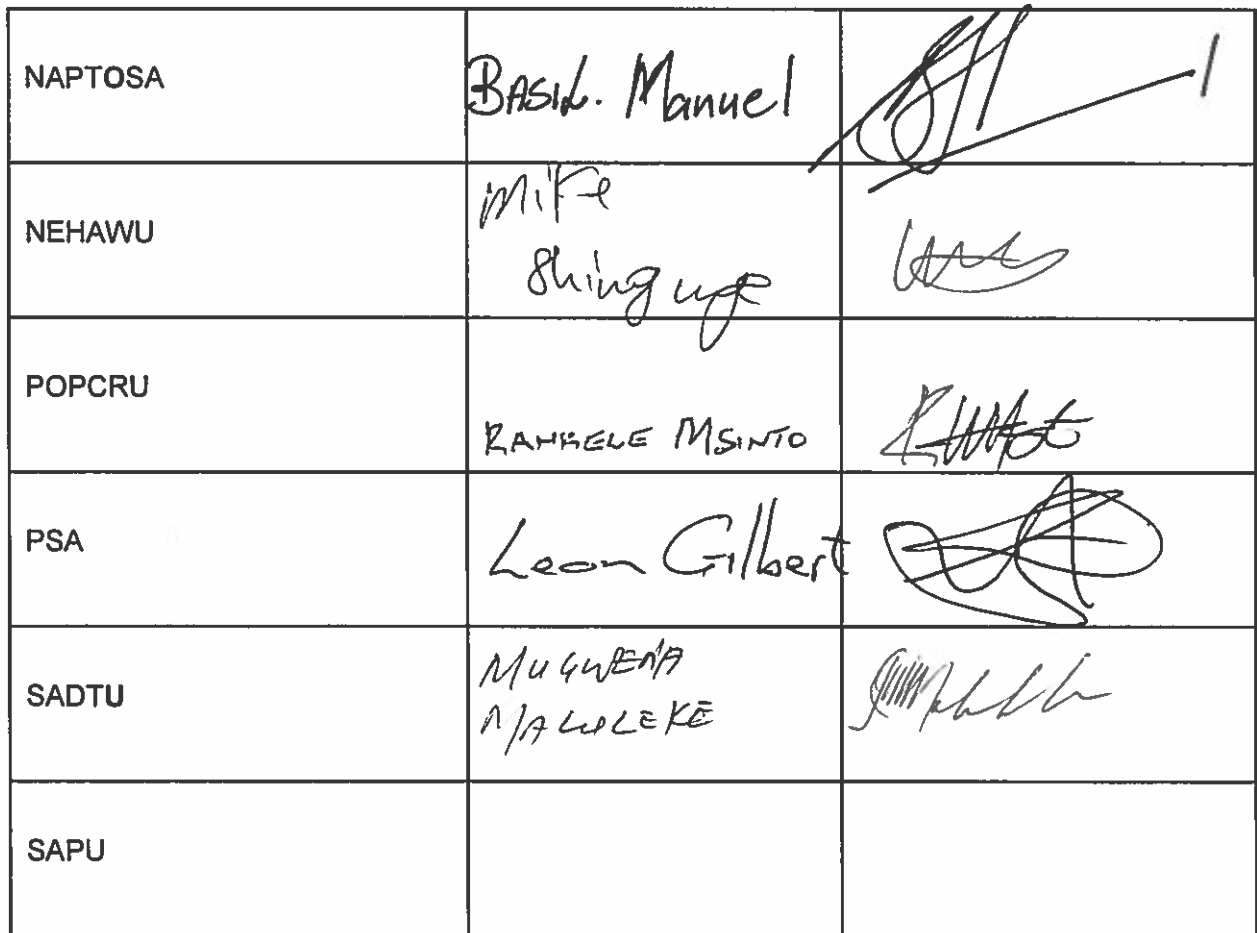 NAPTOSA
BASIL. Manuel
NEHAWU
Mike
Shingunge
POPCRU
MSINTO
PSA
Leon Gilbert
SADTU
MUGWENA
MALULEKE
SAPU